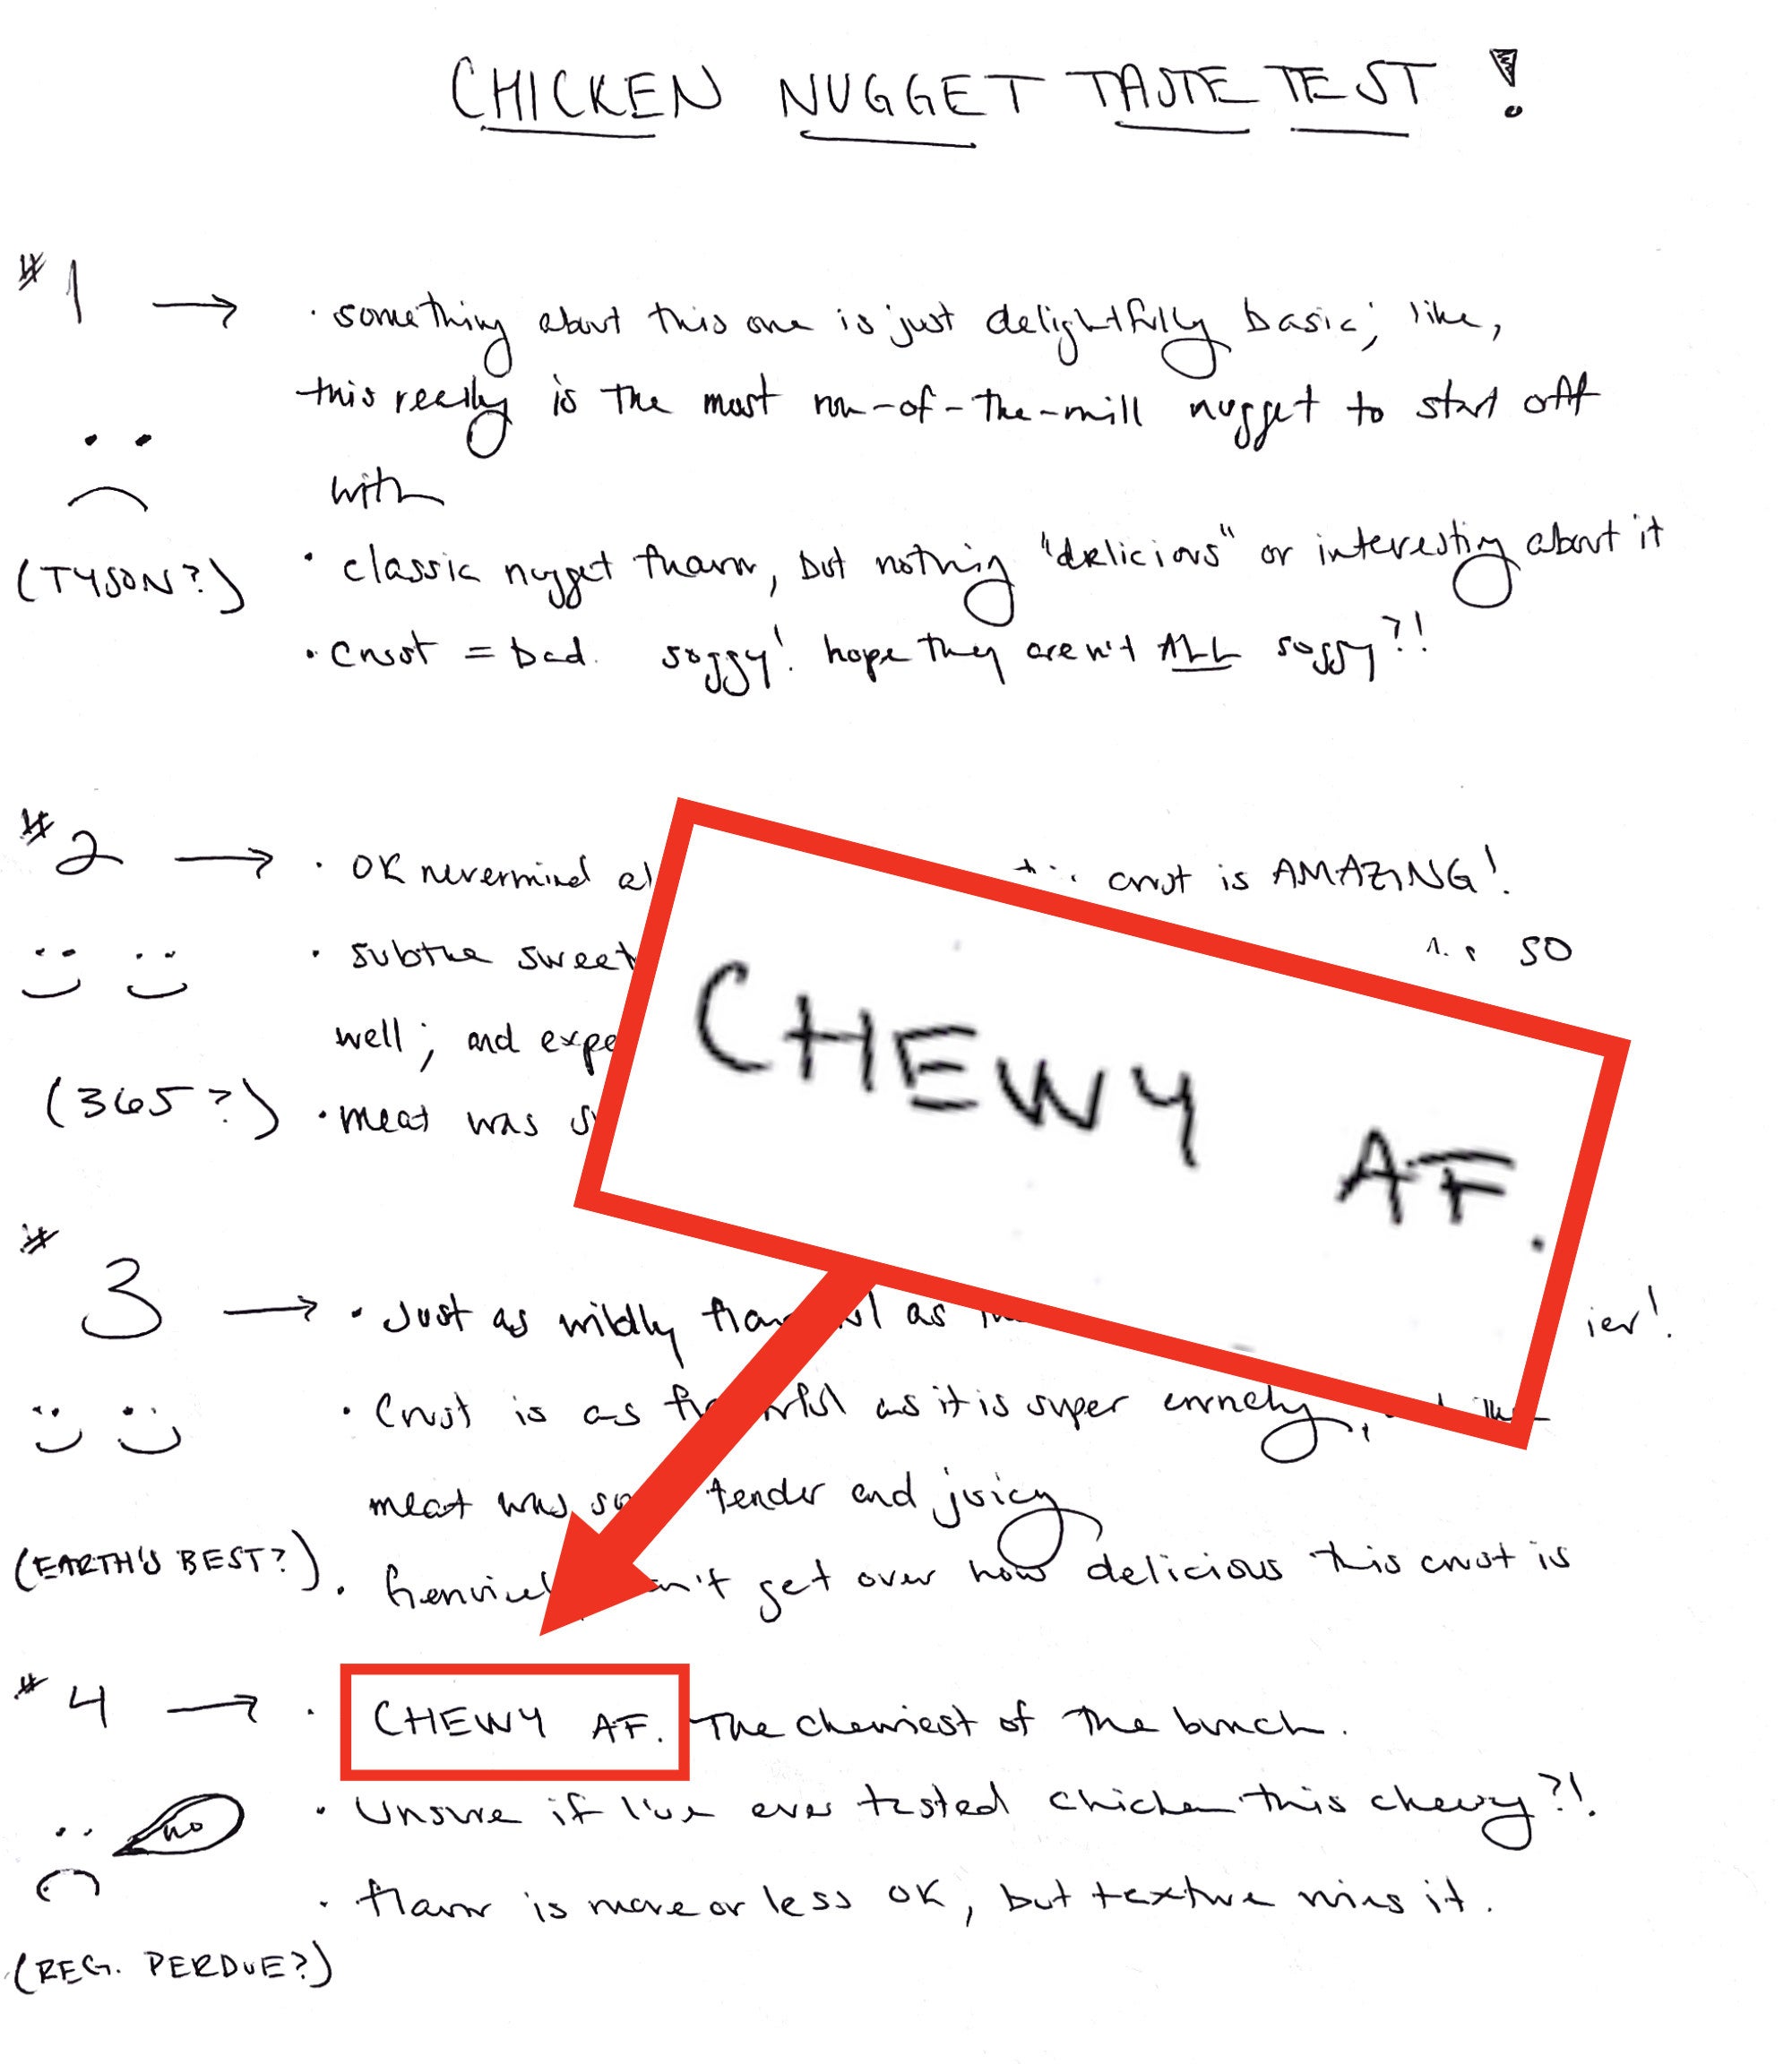 CHICKEN NUGGET TASTE TEST!
#1 → · something about this one is just delightfully basic; like,
this really is the most run-of-the-mill nugget to start off
with
(TYSON?)
· classic nugget flavor, but nothing "delicious" or interesting about it
· Crust = bad. soggy! hope they aren't ALL soggy?!
#2 → · OK nevermind crust is AMAZING!
· subtle sweet so
well; and
(365?)
· meat was
CHEWY AF.
#3 → · Just as mildly as
· Crust is as flavorful as it is super crunchy,
meat was tender and juicy
(EARTH'S BEST?)
· Genuinely can't get over how delicious this crust is
#4 → · CHEWY AF. The chewiest of the bunch.
· Unsure if I've ever tasted chicken this chewy?!
no
· flavor is more or less OK, but texture ruins it.
(REG. PERDUE?)